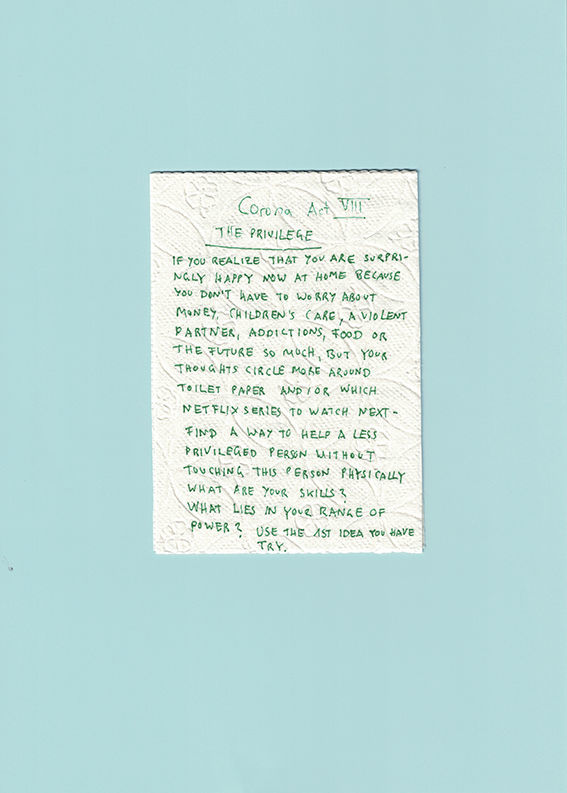 Corona Art VIII
THE PRIVILEGE
IF YOU REALIZE THAT YOU ARE SURPRI-
NGLY HAPPY NOW AT HOME BECAUSE
YOU DON'T HAVE TO WORRY ABOUT
MONEY, CHILDREN'S CARE, A VIOLENT
PARTNER, ADDICTIONS, FOOD OR
THE FUTURE SO MUCH, BUT YOUR
THOUGHTS CIRCLE MORE AROUND
TOILET PAPER AND/OR WHICH
NETFLIX SERIES TO WATCH NEXT-
FIND A WAY TO HELP A LESS
PRIVILEGED PERSON WITHOUT
TOUCHING THIS PERSON PHYSICALLY
WHAT ARE YOUR SKILLS?
WHAT LIES IN YOUR RANGE OF
POWER? USE THE 1ST IDEA YOU HAVE
TRY.